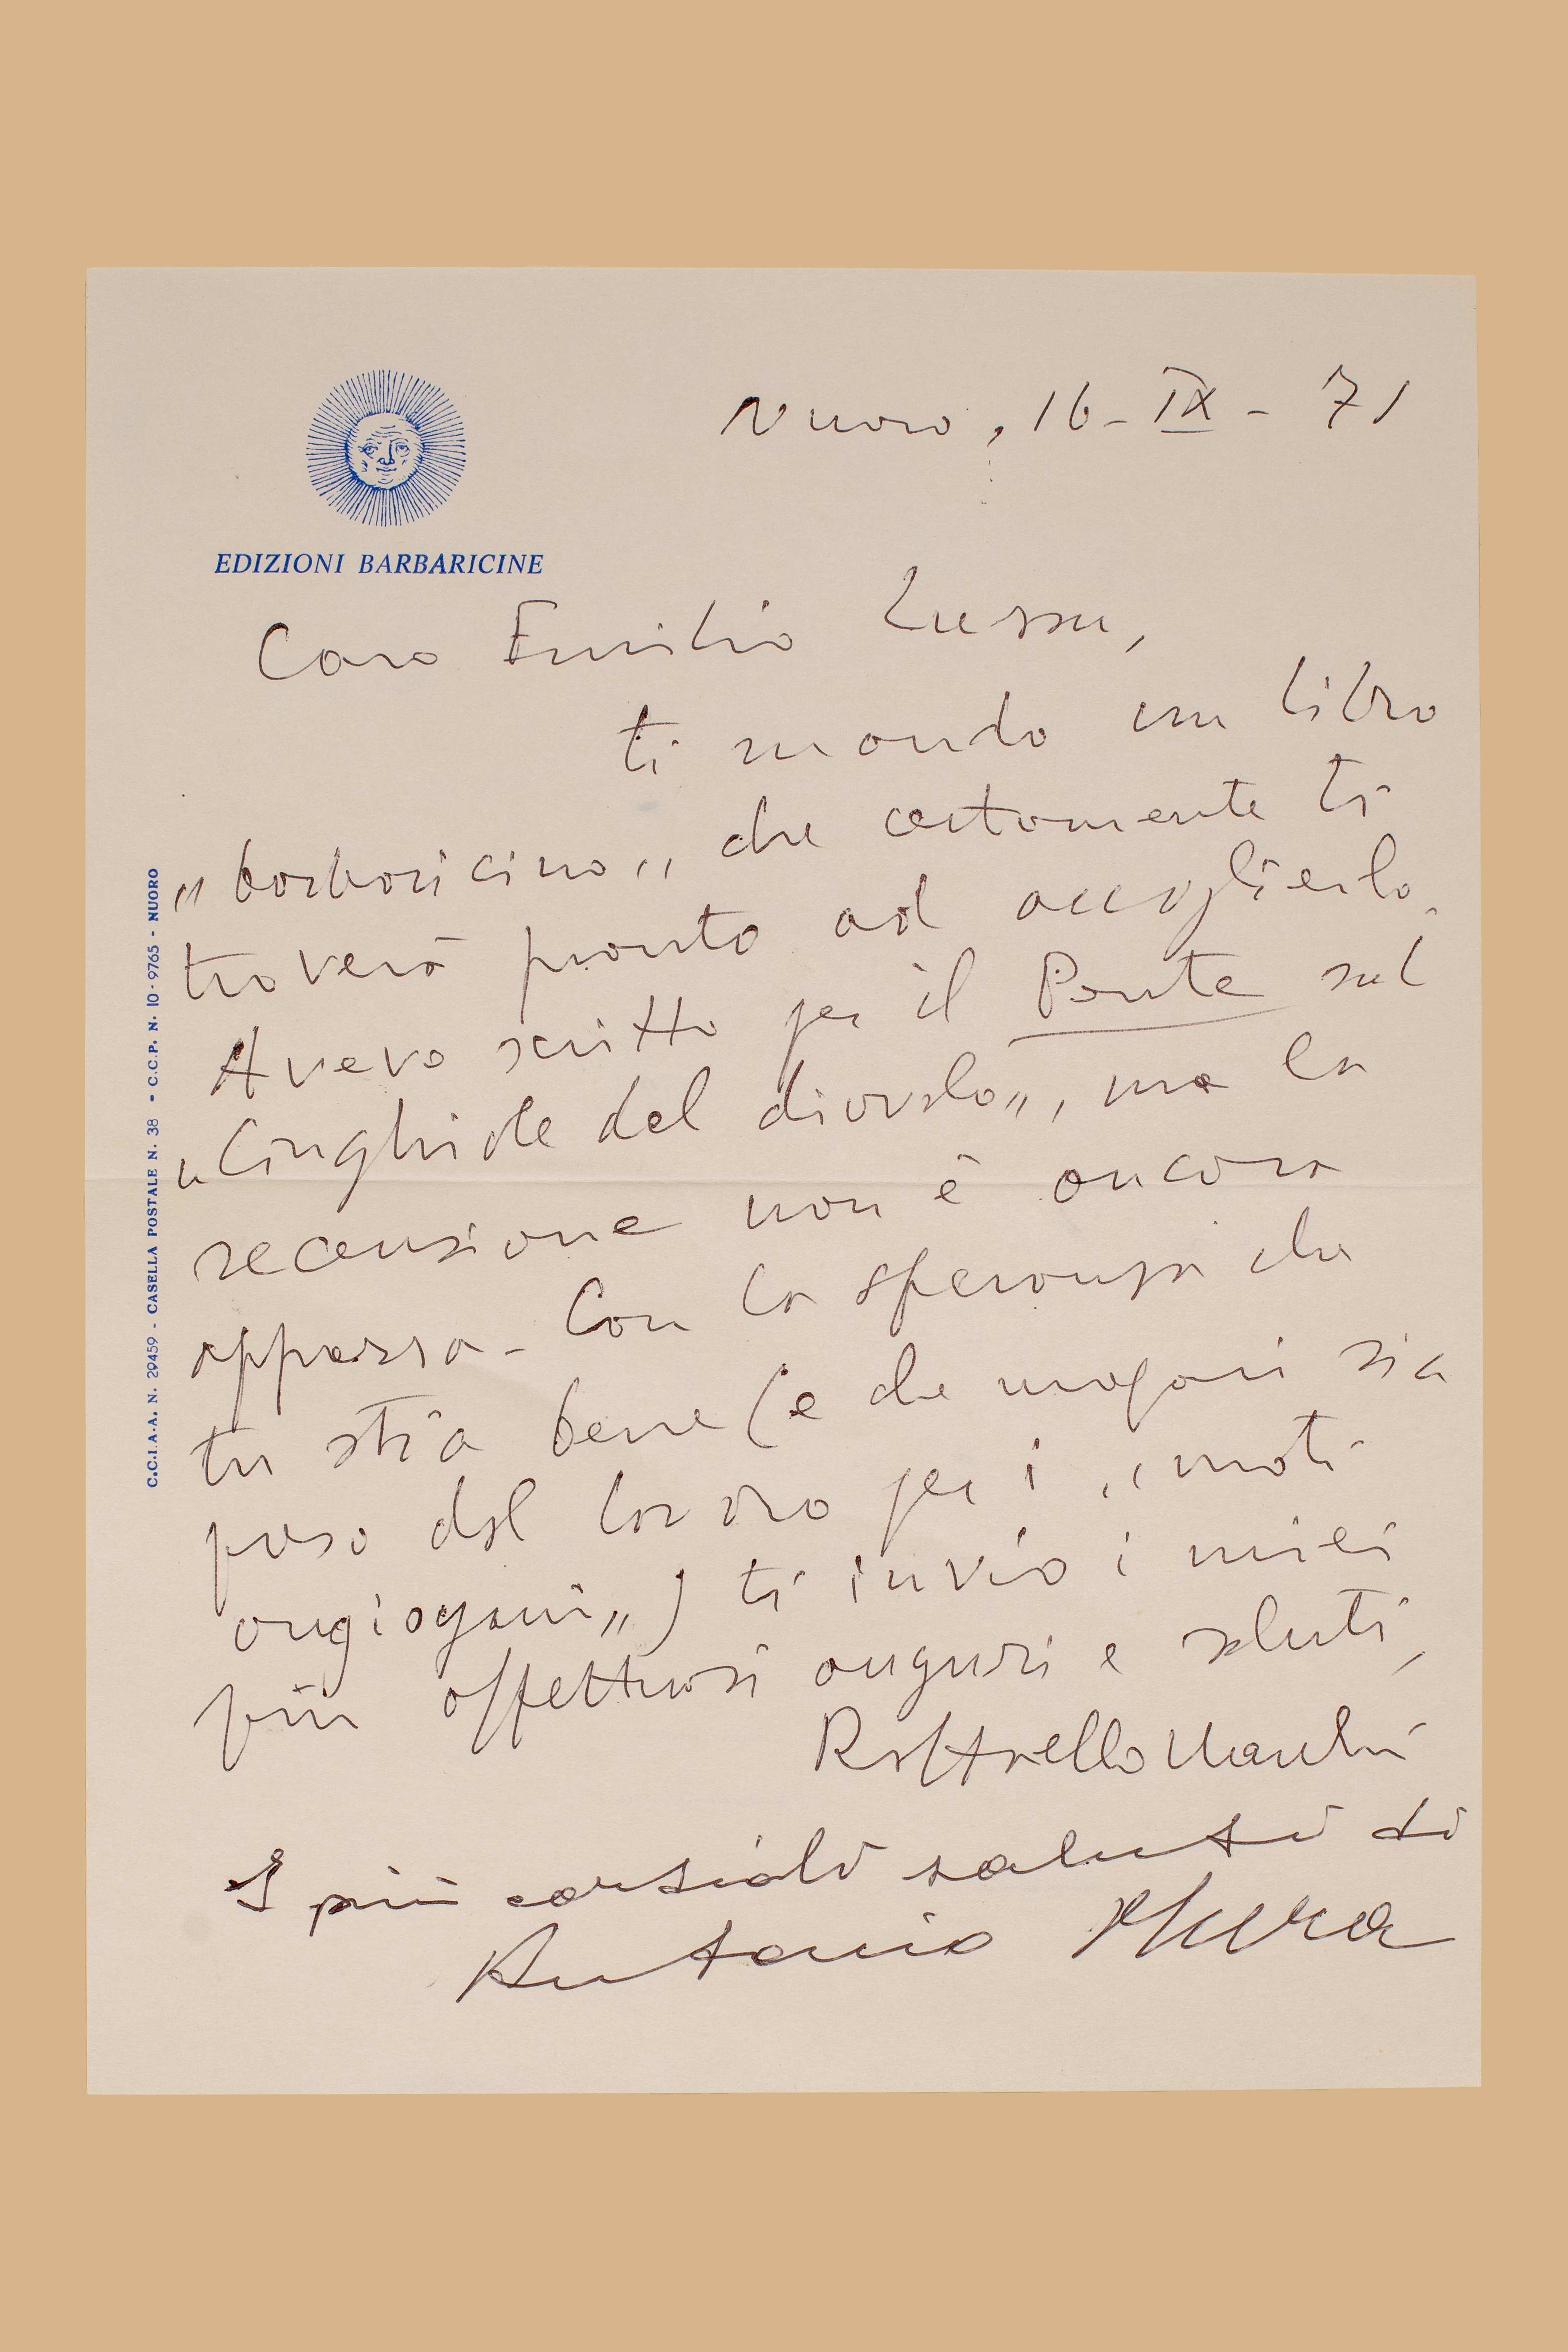 Nuoro, 16-IX-71
EDIZIONI BARBARICINE
Caro Emilio Lussu,
ti mando un libro
"barbaricino" che certamente ti
troverà pronto ad accoglierlo.
Avevo scritto per il Ponte sul
"Cinghiale del diavolo", ma la
recensione non è ancora
apparsa. Con la speranza che
tu stia bene (e che magari sia
preso dal lavoro per i "moti
angioyani") ti invio i miei
più affettuosi auguri e saluti,
Raffaello Marchi
I più cordiali saluti di
Antonio Mura
C.C.I.A.A. N. 29459 - CASELLA POSTALE N. 38 - C.C.P. N. 10-9765 - NUORO